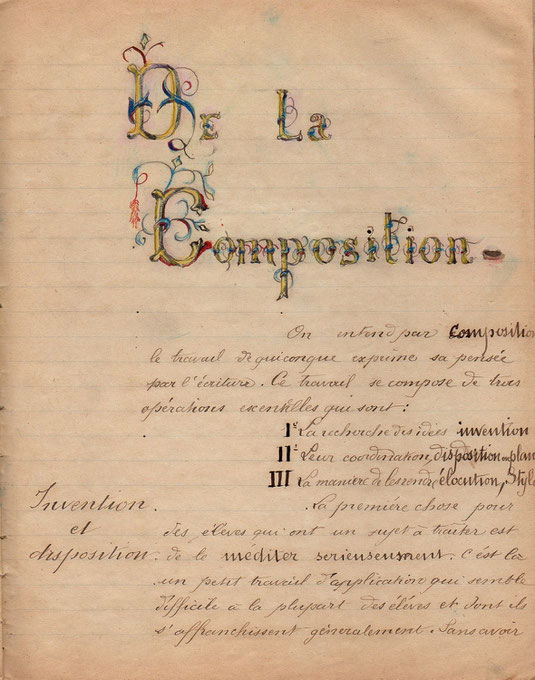 De La
Composition
On entend par Composition
le travail de quiconque exprime sa pensée
par l'écriture. Ce travail se compose de trois
opérations escentielles qui sont :
I° La recherche des idées invention
II° Leur coordination, disposition ou plan
III La manière de les rendre, élocution, Style
Invention
et
disposition.
La première chose pour
des élèves qui ont un sujet à traiter est
de le mediter serieusement. C'ést là
un petit travail d'application qui semble
difficile à la plupart des élèves et dont ils
s'affranchissent généralement. Sans avoir